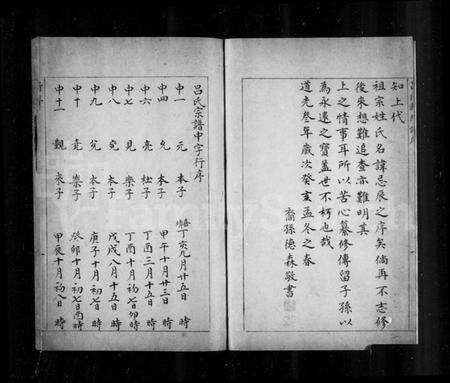 知上代
祖宗姓氏名諱忌辰之序矣倘再不志修
後來想難追查亦難明其
上之情事耳所以苦心纂修傳留子孫以
為永遠之寶蓋世不朽也哉
道光叁年歲次癸亥孟冬之春
裔孫德森敬書
呂氏宗譜申字行序
申一 元 本子 丁亥九月廿五日 時
申四 允 本子 甲午十月廿三日 時
申六 亮 杜子 丁酉三月十五日 時
申七 見 樂子 丁酉十月初七日卯時
申八 充 本子 戊戌八月十五日 時
申九 完 本子 庚子十月初七日 時
申十 堯 樂子 癸卯十月初七日酉時
申十一 觀 來子 甲辰十月初八日 時